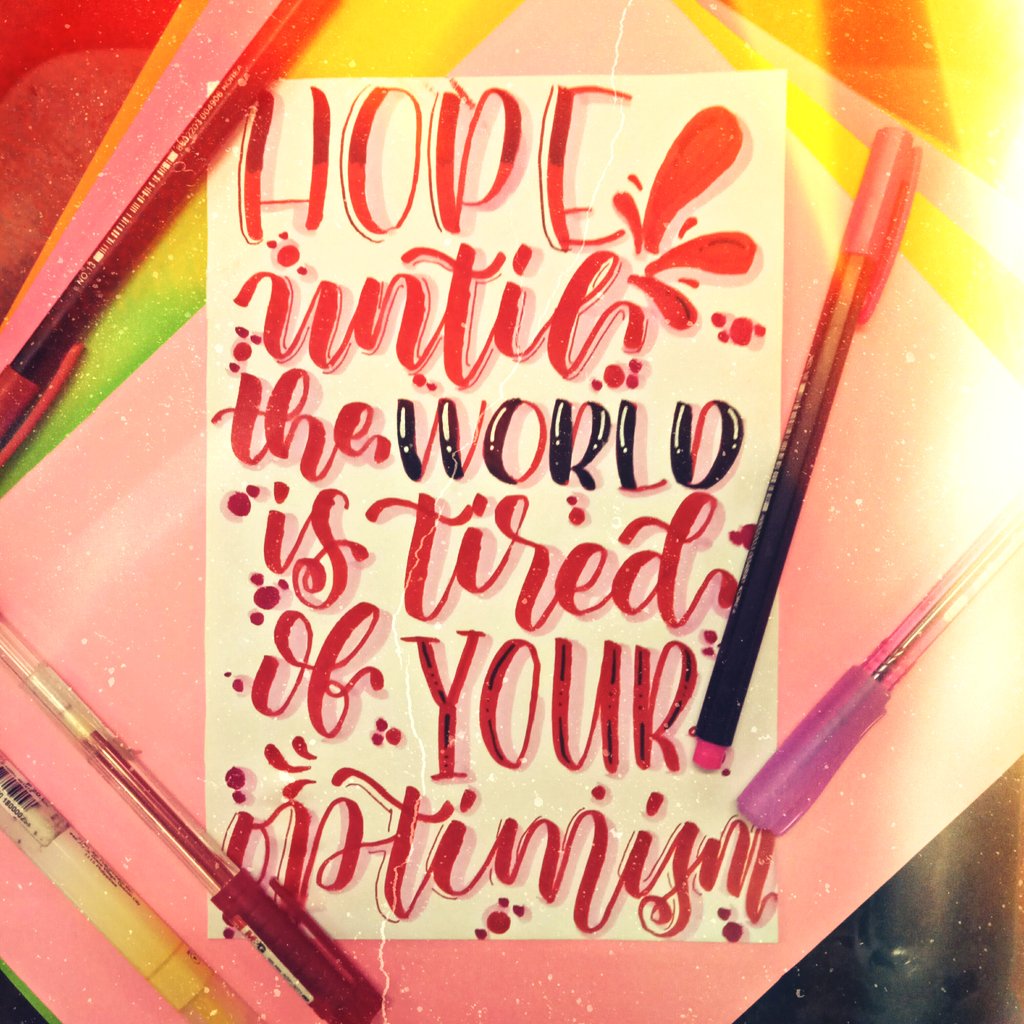 HOPE
until
the WORLD
is tired
of YOUR
optimism
NO.13